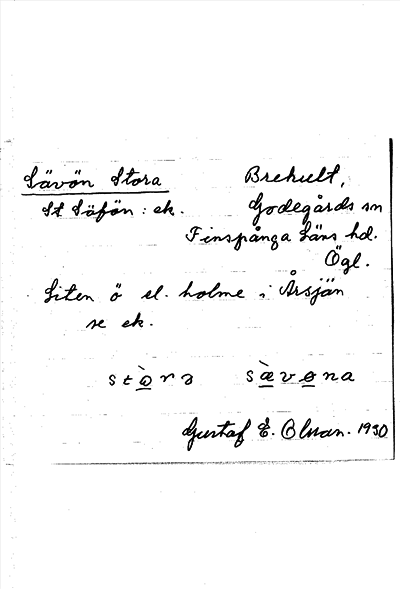 Sävön Stora Brehult,
St Säfön : ek. Godegårds sn
Finspånga Läns hd.
Ögl.
Liten ö el. holme i Årsjön
se ek.
stòrə sæ̀vøna
Gustaf E. Olsson. 1930